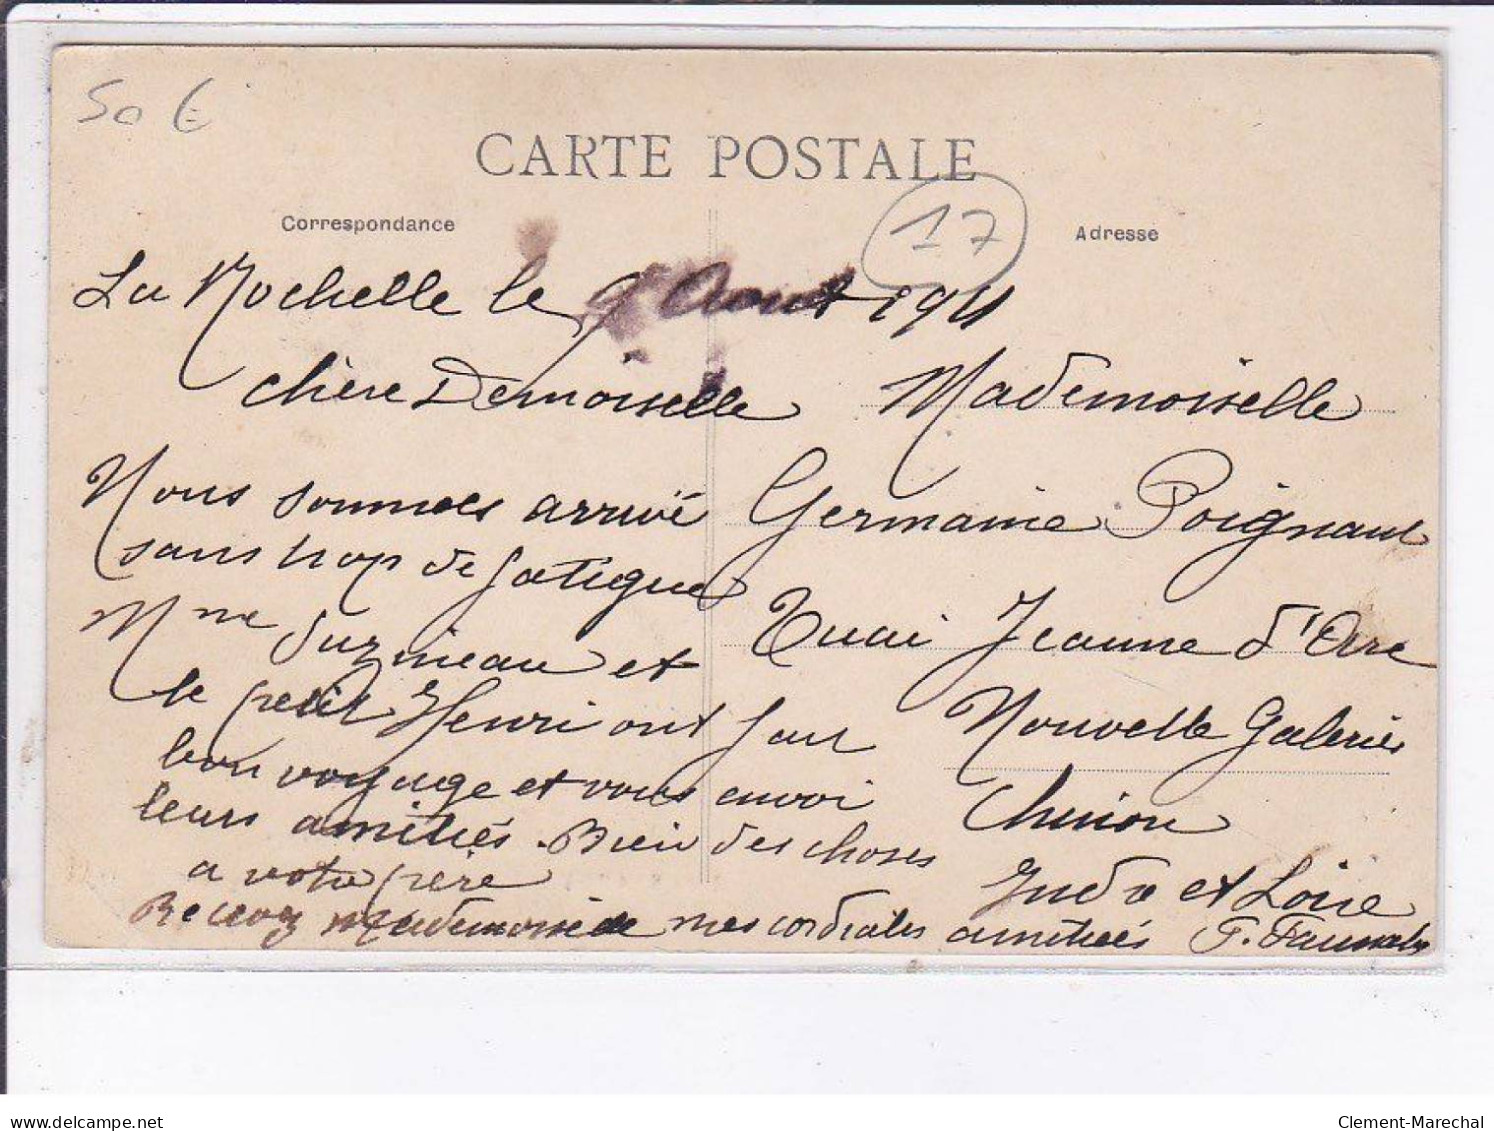 50 €
CARTE POSTALE
17
Correspondance
Adresse
La Rochelle le 9 Aout 1911
chère Demoiselle
Nous sommes arrivé
sans trop de fatigue
Mme Suzineau et
le petit Henri ont fait
bon voyage et vous envoi
leurs amitiés. Bien des choses
a votre père
Recevez Mademoiselle mes cordiales amitiées
Mademoiselle
Germaine Poignant
Quai Jeanne d'Arc
Nouvelle Galeries
Chinon
Indre et Loire
delcampe.net
Clement-Marechal